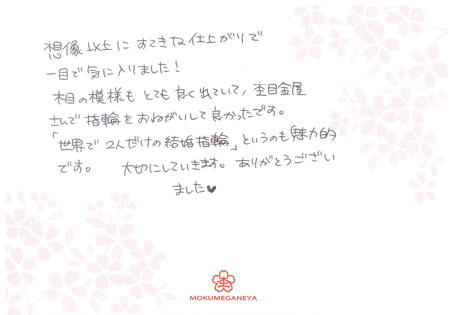 想像以上に すてきな仕上がりで
一目で気に入りました!
木目の模様も とても良く出ていて、杢目金屋
さんで 指輪を おねがいして 良かったです。
「世界で 2人だけの 結婚指輪」というのも 魅力的
です。 大切にしていきます。 ありがとうござい
ました♥
MOKUMEGANEYA